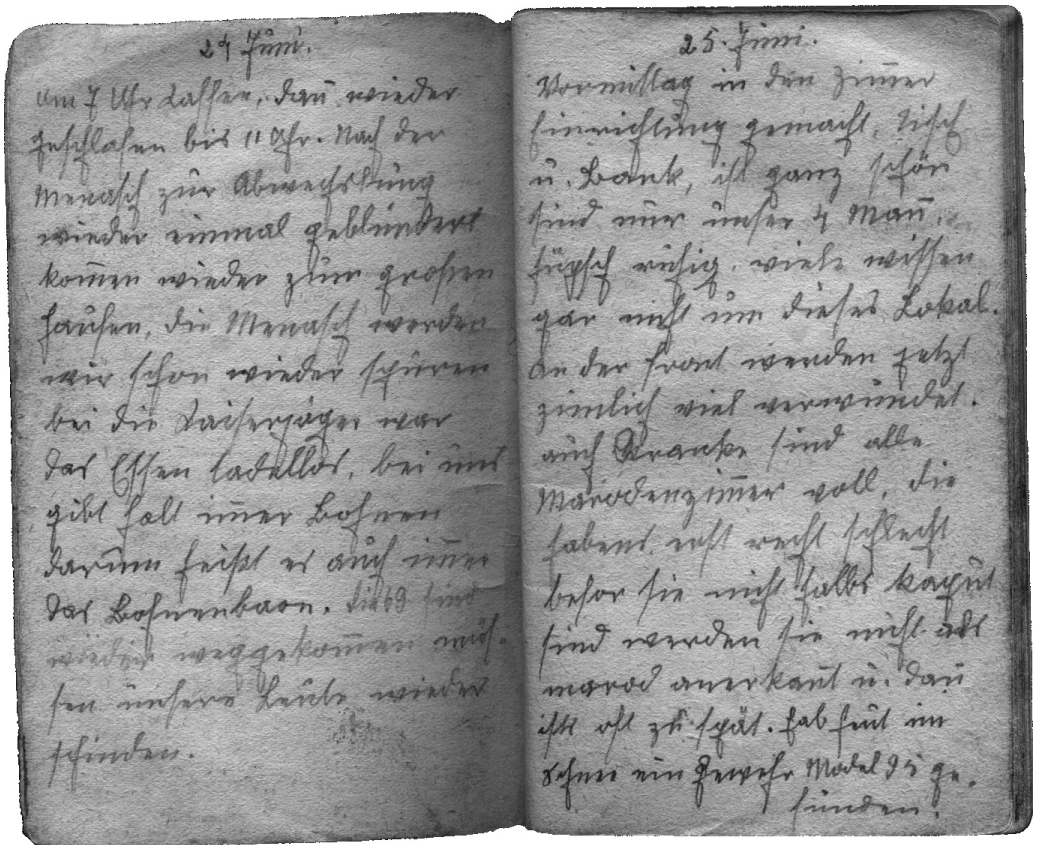 24 Juni.
Um 7 Uhr Kaffee, dañ wieder
geschlafen bis 11 Uhr. Nach der
Menasch zur Abwechslung
wieder einmal geblündert
kom̃en wieder zum großen
haufen, die Menasch werden
wir schon wieder spüren
bei die Kaiserjäger war
das Essen tadellos, bei uns
gibt halt im̃er Bohnen
darum heißt es auch im̃er
das Bohnenbaon. Die 69 sind
wieder weggekom̃en müs-
sen unsere Leute wieder
schinden.
25. Juni.
Vormittag in den Zim̃er
Einrichtung gemacht, Tisch
u. Bank, ist ganz schön
sind nur unser 4 Mañ.
hüpsch ruhig. viele wissen
gar nicht um dieses Lokal.
An der Front werden jetzt
zimlich viel verwundet.
auch Kranke sind alle
Marodenzim̃er voll, die
habens erst recht schlecht
befor sie nicht halbs kaput
sind werden sie nicht als
marod anerkañt u. dañ
ists oft zu spät. hab heut im
Schnee ein Gewehr Model 95 ge-
funden!